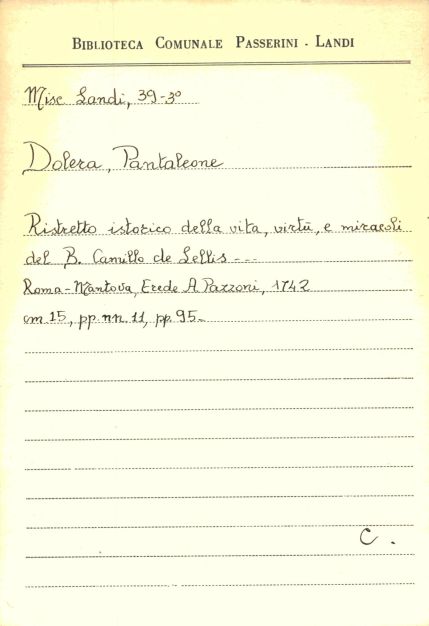 BIBLIOTECA COMUNALE PASSERINI - LANDI
Misc Landi, 39-3º
Dolera, Pantaleone
Ristretto istorico della vita, virtù, e miracoli
del B. Camillo de Lellis ---
Roma-Mantova, Erede A. Pazzoni, 1742
cm 15, pp. nn. 11, pp. 95.
C.